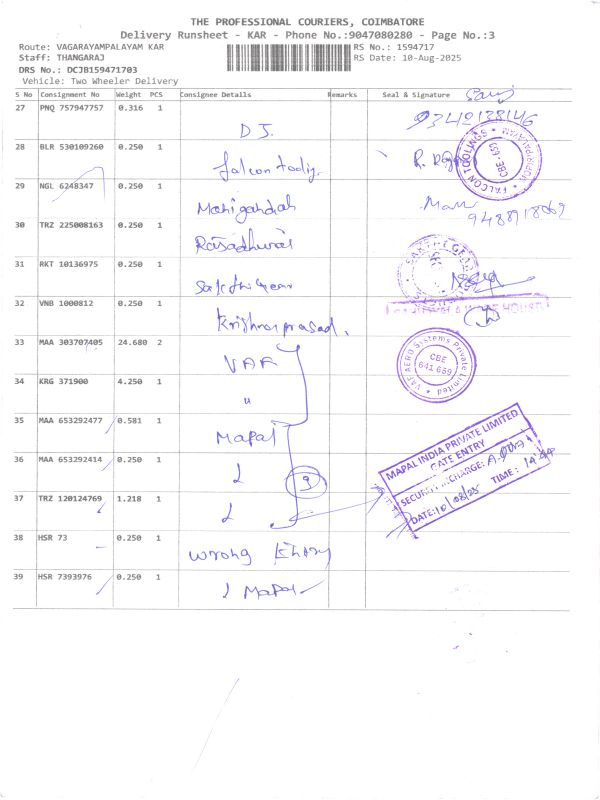 THE PROFESSIONAL COURIERS, COIMBATORE
Delivery Runsheet - KAR - Phone No.:9047080280 - Page No.:3
Route: VAGARAYAMPALAYAM KAR RS No.: 1594717
Staff: THANGARAJ RS Date: 10-Aug-2025
DRS No.: DCJB159471703
Vehicle: Two Wheeler Delivery
S No Consignment No Weight PCS Consignee Details Remarks Seal & Signature
27 PNQ 757947757 0.316 1 D J. 9342138146
28 BLR 530109260 0.250 1 falcon toolig. R.
FALCON TOOLINGS CBE-659
29 NGL 6248347 0.250 1 Manigandah Mani 9488918069
30 TRZ 225008163 0.250 1 Rasadhurai
31 RKT 10136975 0.250 1 Sakthi Gear
SAKTHI GEAR
32 VNB 1000812 0.250 1 Krishnaprasad.
33 MAA 303707405 24.680 2 VAF
VAF AERO Systems Private Limited CBE 641 659
34 KRG 371900 4.250 1 "
35 MAA 653292477 0.581 1 Mapal
36 MAA 653292414 0.250 1
MAPAL INDIA PRIVATE LIMITED
GATE ENTRY
SECURITY INCHARGE:
DATE: 10/08/25 TIME:
37 TRZ 120124769 1.218 1
38 HSR 73 0.250 1 wrong
39 HSR 7393976 0.250 1 Mapal